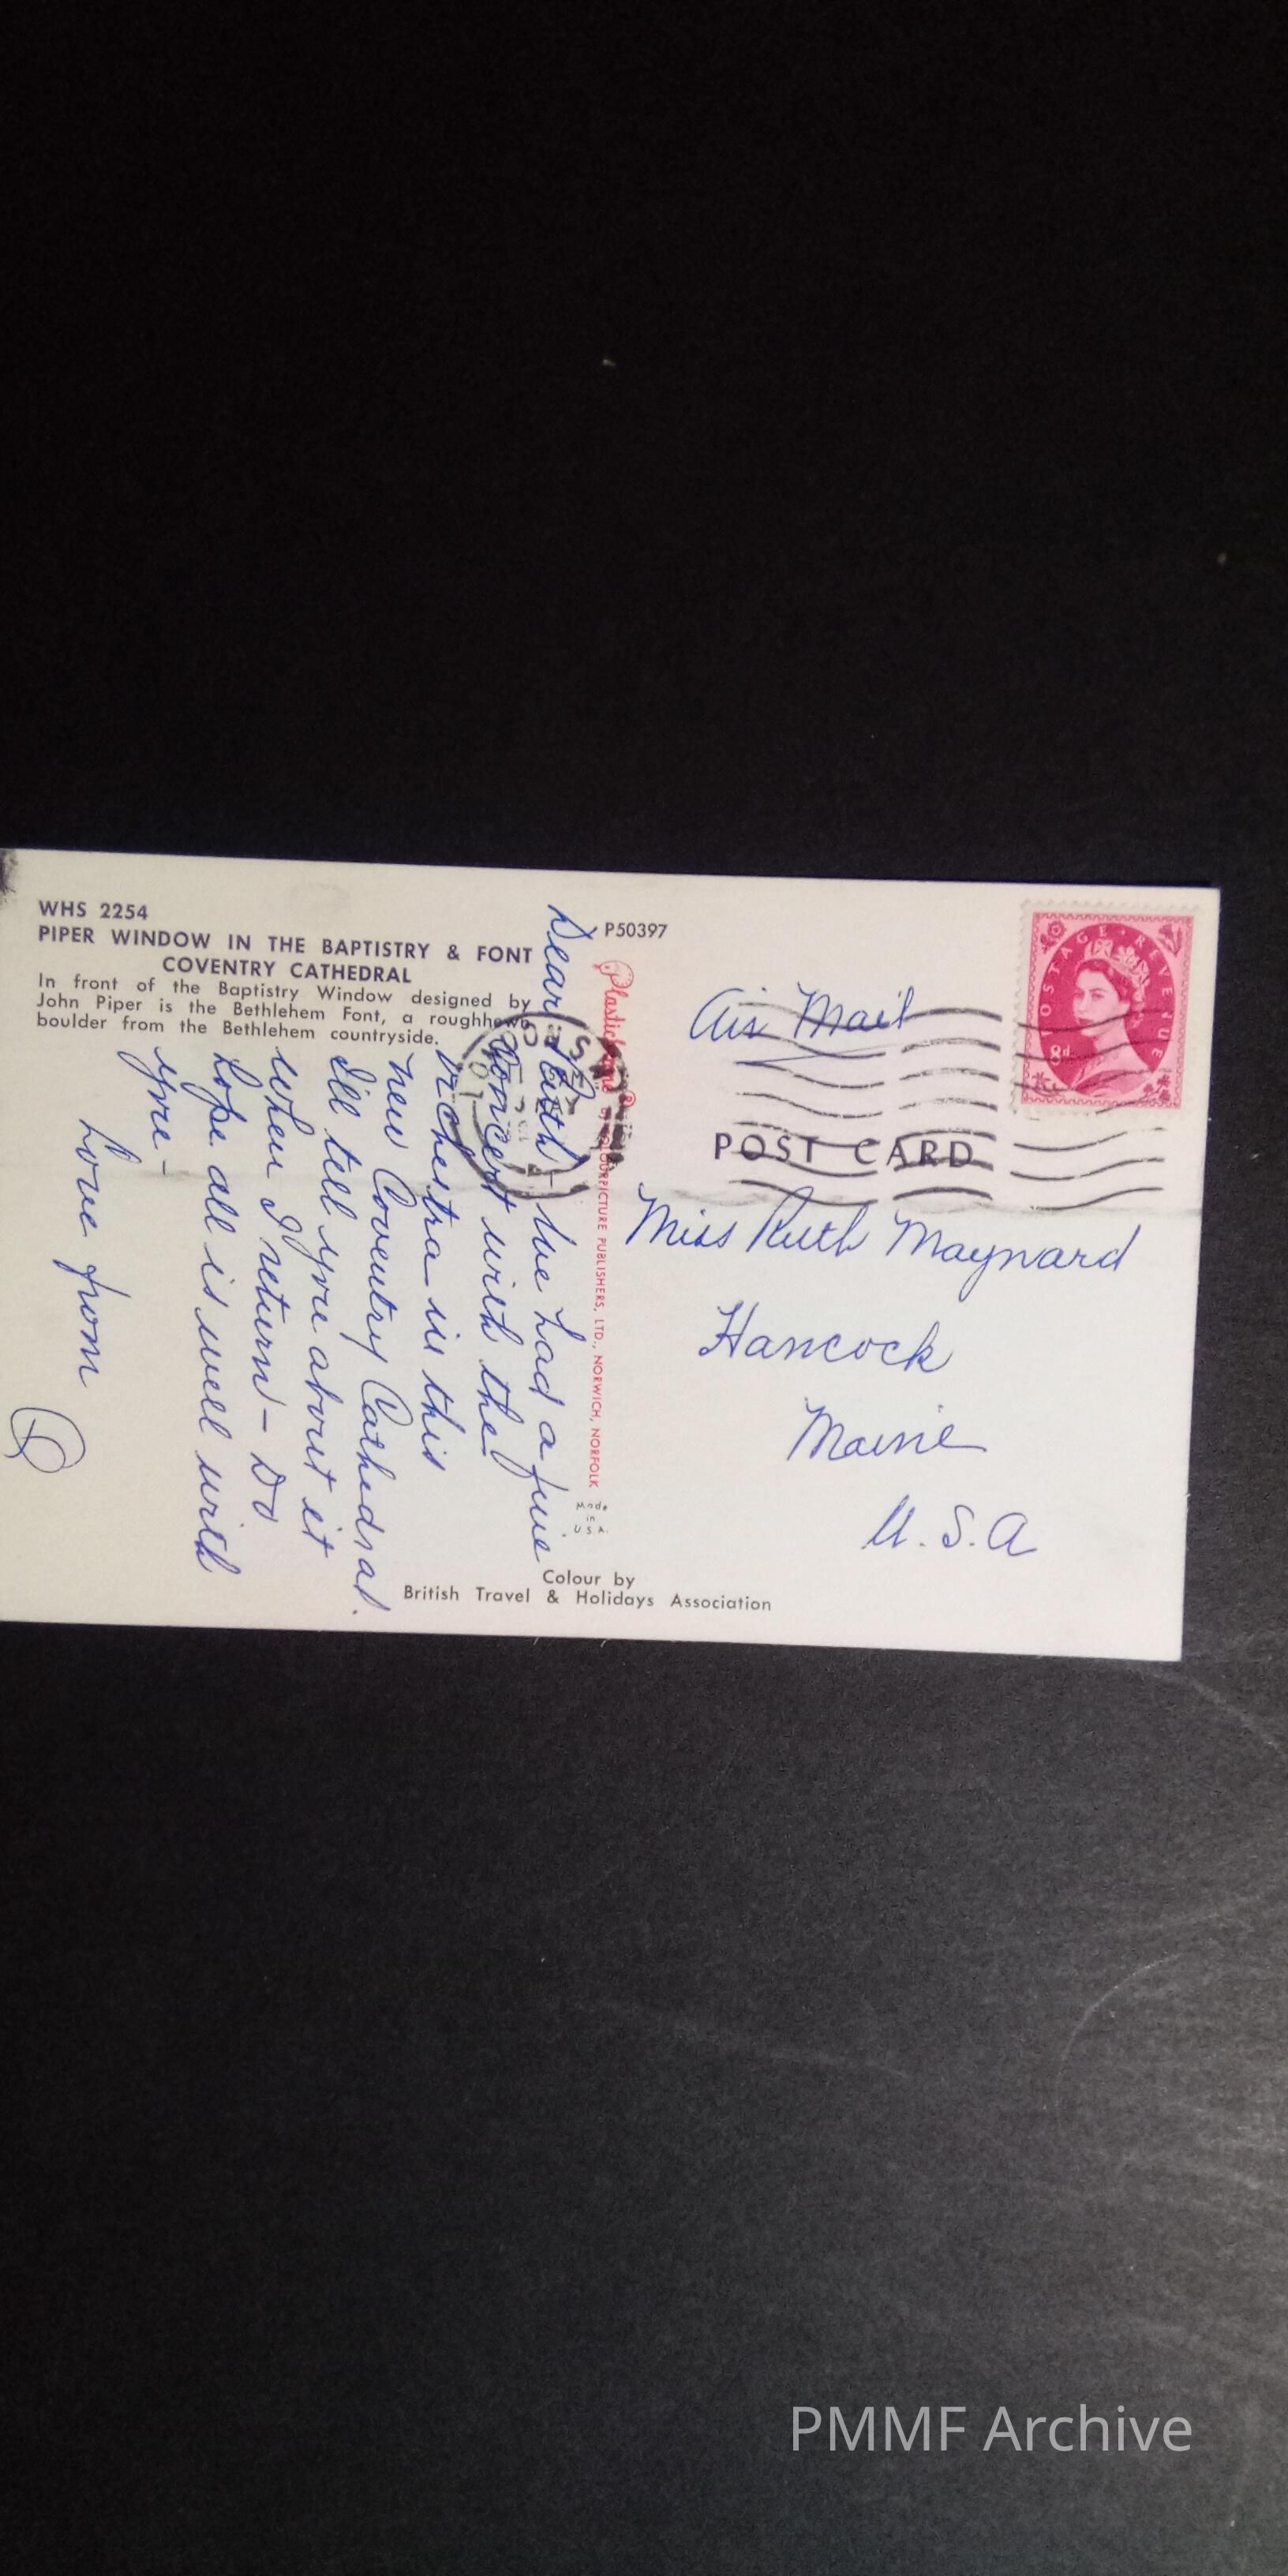 WHS 2254
PIPER WINDOW IN THE BAPTISTRY & FONT
COVENTRY CATHEDRAL
In front of the Baptistry Window designed by
John Piper is the Bethlehem Font, a roughhewn
boulder from the Bethlehem countryside.
Dear Ruth - We had a fine
concert with the
orchestra in this
new Coventry Cathedral.
I'll tell you about it
when I return - Do
hope all is well with
you -
Love from
P50397
COLOURPICTURE PUBLISHERS, LTD., NORWICH, NORFOLK
Made
in
U.S.A.
Colour by
British Travel & Holidays Association
Air Mail
POST CARD
Miss Ruth Maynard
Hancock
Maine
U.S.A
POSTAGE REVENUE
8d
PMMF Archive